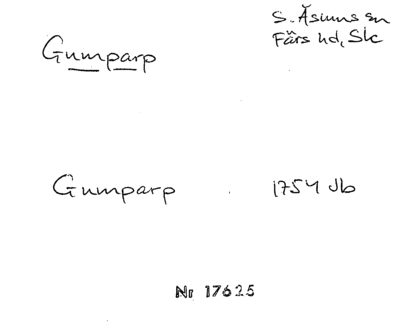 Gumparp
S. Åsums sn
Färs hd, Sk
Gumparp
1754 Jb
Nr 17625